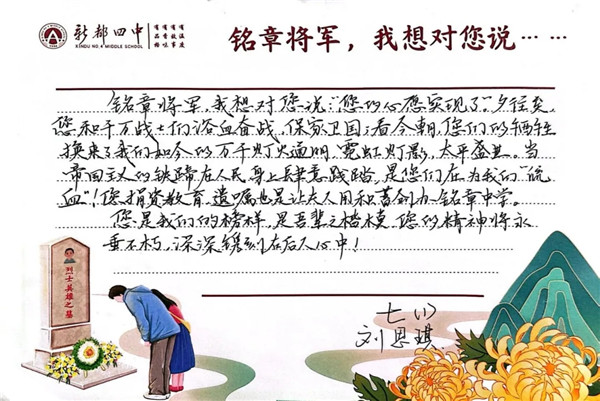 新都四中
XINDU NO.4 MIDDLE SCHOOL
铭章将军，我想对您说……
铭章将军，我想对您说：“您的心愿实现了。”夕往矣，
您和千万战士们浴血奋战，保家卫国；看今朝，您们的牺牲
换来了我们如今的万千灯火通明，霓虹灯影，太平盛世。当
帝国主义的铁蹄在人民身上肆意践踏，是您们在为我们“流
血”！您捐资教育，遗嘱也是让夫人用积蓄创办铭章中学。
您是我们的榜样，是吾辈之楷模。您的精神将永
垂不朽，深深镌刻在后人心中！
烈士英雄之墓
七(1)
刘恩琪